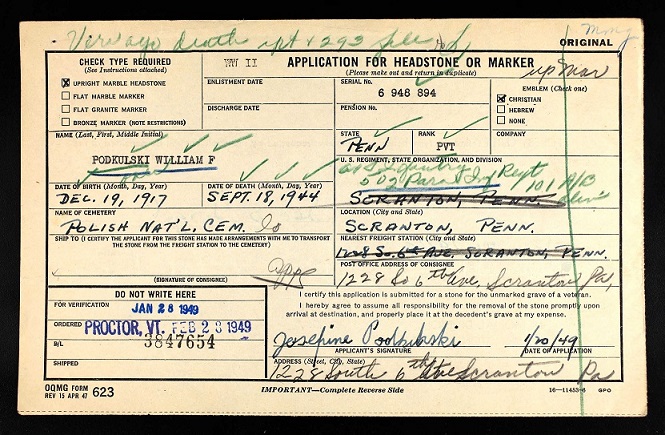 Verv ago death rpt & 293 file
ORIGINAL
CHECK TYPE REQUIRED
(See Instructions attached)
W II
APPLICATION FOR HEADSTONE OR MARKER
(Please make out and return in duplicate)
up mar
UPRIGHT MARBLE HEADSTONE
FLAT MARBLE MARKER
FLAT GRANITE MARKER
BRONZE MARKER (NOTE RESTRICTIONS)
ENLISTMENT DATE
DISCHARGE DATE
SERIAL No.
6 948 894
PENSION No.
EMBLEM (Check one)
CHRISTIAN
HEBREW
NONE
NAME (Last, First, Middle Initial)
PODKULSKI WILLIAM F
STATE
PENN
RANK
PVT
COMPANY
U. S. REGIMENT, STATE ORGANIZATION, AND DIVISION
502 Para Inf Regt 101 A/B Div
SCRANTON, PENN.
DATE OF BIRTH (Month, Day, Year)
DEC. 19, 1917
DATE OF DEATH (Month, Day, Year)
SEPT. 18, 1944
NAME OF CEMETERY
POLISH NAT'L. CEM.
LOCATION (City and State)
SCRANTON, PENN.
SHIP TO (I CERTIFY THE APPLICANT FOR THIS STONE HAS MADE ARRANGEMENTS WITH ME TO TRANSPORT
THE STONE FROM THE FREIGHT STATION TO THE CEMETERY)
NEAREST FREIGHT STATION (City and State)
1228 SO. 6th AVE. SCRANTON, PENN.
POST OFFICE ADDRESS OF CONSIGNEE
1228 So 6th Ave. Scranton Pa,
appe
(SIGNATURE OF CONSIGNEE)
DO NOT WRITE HERE
FOR VERIFICATION
JAN 28 1949
ORDERED
PROCTOR, VT. FEB 28 1949
B/L
3847654
SHIPPED
I certify this application is submitted for a stone for the unmarked grave of a veteran.
I hereby agree to assume all responsibility for the removal of the stone promptly upon
arrival at destination, and properly place it at the decedent's grave at my expense.
Josephine Podkulski
1/20/49
APPLICANT'S SIGNATURE
DATE OF APPLICATION
ADDRESS (Street, City, State)
1228 South 6th Ave Scranton Pa
OQMG FORM
REV 15 APR 47
623
IMPORTANT—Complete Reverse Side
16—11453-6
GPO